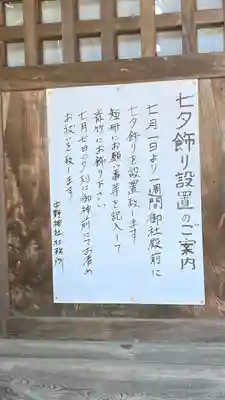 七夕飾り設置のご案内
七月一日より一週間御社殿前に
七夕飾りを設置致します
短冊にお願い事等を記入して
若竹にお飾り下さい
七月七日の夕刻に御神前にてお清め
お祓いを致します
中野神社社務所